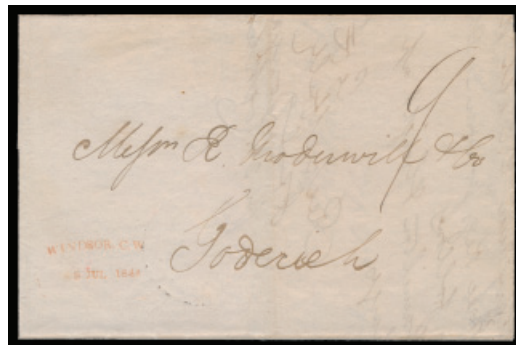 9
Messrs R. Moderwell & Co
Goderich
WINDSOR. C.W.
JUL 184